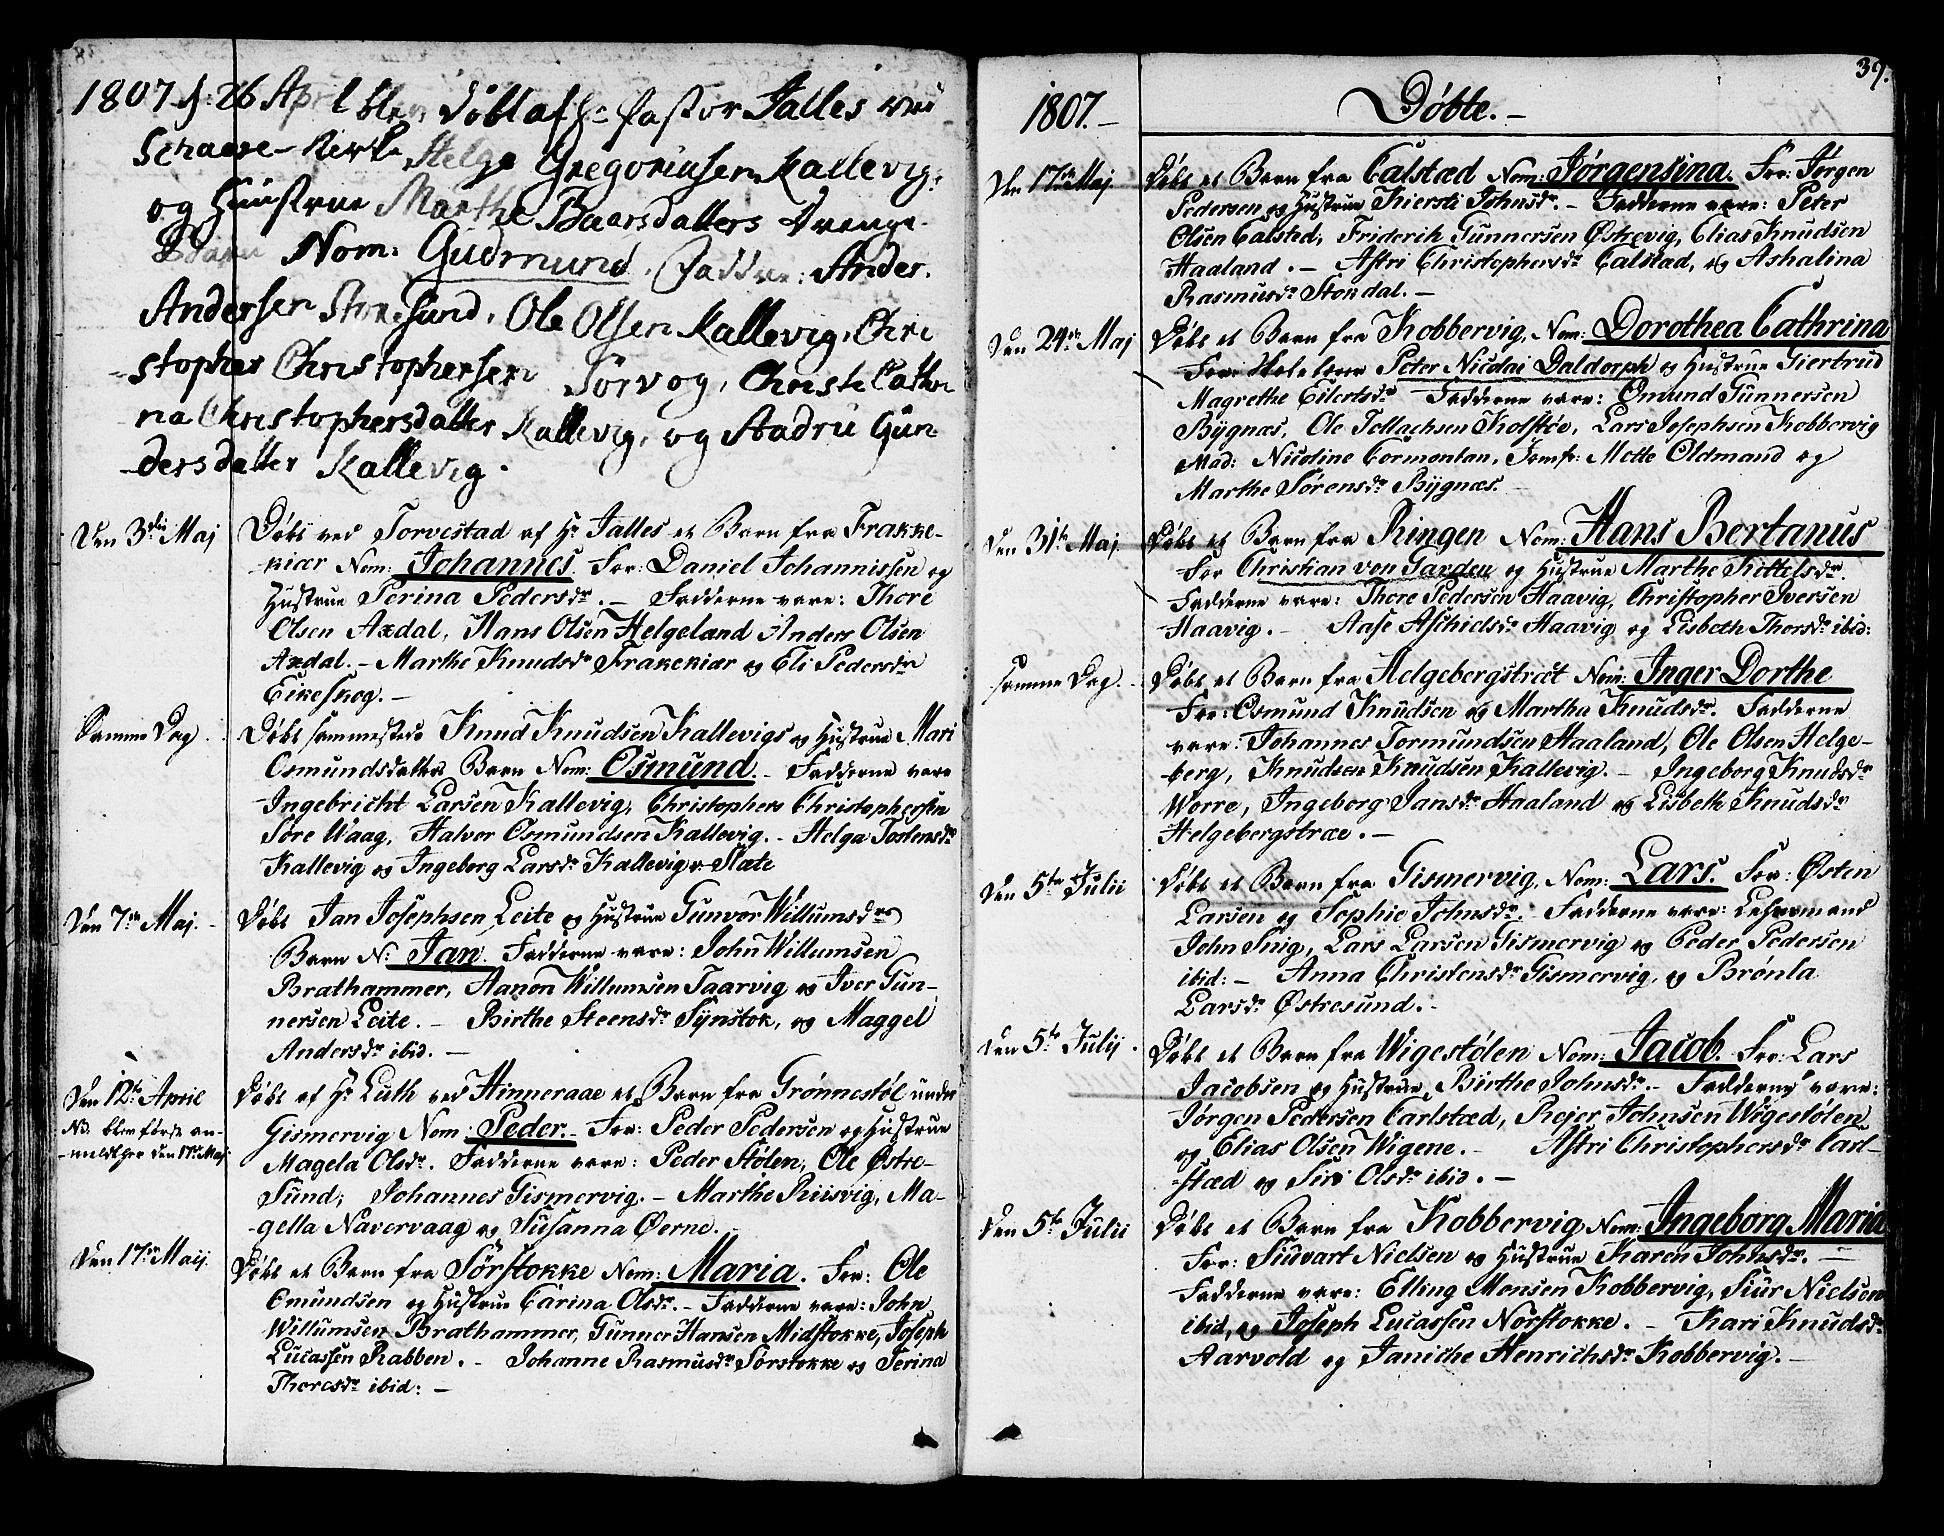 1807 d: 26 April blev döbt af Hr Pastor Jalles ved
Schaare-Kirke Helge Gregoriusen Kallevig:
og Hüustrue Marthe Baarsdatters Drenge-
Barn Nom: Gudmund. Faddre: Ander.
Andersen Storesund, Ole Olsen Kallevig, Chri
stopher Christophersen Sörvog, Christi Cathri
na Christophersdatter Kallevig, og Aadru Gün
dersdatter Kallevig.
Den 3die Maj Döbt ved Torvestad af Hr Jalles et Barn fra Frakke-
kiær Nom: Johannes. For: Daniel Johannissen og
Hustrue Terina Pedersdr. - Fadderne vare: Thore
Olsen Axdal, Hans Olsen Helgeland Anders Olsen
Axdal. - Marthe Knudsdr Frakekiær og Eli Pedersdr
Eikeskog. -
Samme Dag. Döbt sammesteds Knud Knudsen Kallevigs og Hustrue Mari
Osmundsdatters Barn Nom: Osmund. - Fadderne vare
Ingebricht Larsen Kallevig, Christopher Christophersen
Söre Waag, Halvor Osmundsen Kallevig. - Helga Tostensdr
Kallevig og Ingeborg Larsdr Kallevig v. Slæte
Den 7de Maj. - Döbt Jan Josephsen Leite og Hustrue Gunvor Willumsdrs
Barn N: Jan. Fadderne vare: John Willumsen
Brathammer, Aanon Willumsen Taarvig og Iver Gun-
nersen Leite. - Birthe Steensdr Synstok, og Maggel
Andersdr ibid. -
Den 12te April Döbt af Hr Luth ved Hinneraae et Barn fra Grönnestöl under
NB. blev först an-
-meldt her den 17de Maj
Gismervig Nom: Peder. - For: Peder Pedersen og Hustrue
Magela Olsdr. Fadderne vare: Peder Stölen, Ole Østre-
Sund, Johannes Gismervig. - Marthe Riisvig, Ma-
-gella Navervaag og Susanna Øerne. -
Den 17de Maij. Döbt et Barn fra Sörstokke Nom: Maria. For: Ole
Omundsen og Hustrue Carina Olsdr. - Fadderne vare: John
Willumsen Brathammer, Gunner Hansen Midstokke, Joseph
Lucassen Rabben. - Johanne Rasmusdr Sörstokke og Terina
Thoresdr ibid: -
39.
1807. - Döbte. -
Den 17de Maj. Döbt et Barn fra Calstæd Nom: Jørgensina. For: Jørgen
Pedersen og Hustrue Kiersti Johnsdr. - Fadderne vare: Peter
Olsen Calsted, Friderik Gunnersen Østrevig, Elias Knudsen
Haaland. - Astri Christophersdr Calstæd, og Ashalina
Rasmusdr Stondal. -
Den 24de Maj Döbt et Barn fra Kobbervig, Nom: Dorothea Cathrina
For: Skolelærer Peter Nicolai Daldorph og Hustrue Giertrud
Magrethe Eilertsdr Fadderne vare: Omund Gunnersen
Bygnæs, Ole Tollachsen Kolstöe, Lars Josephsen Kobbervig
Mad: Nicoline Cormontan, Jomfr: Mette Oldmand og
Marthe Sörensdr Bygnæs. -
Den 31te Maj. Döbt et Barn fra Ringen Nom: Hans Bertanus
For Christian von Garden og Hustrue Marthe Kittelsdr.
Fadderne vare: Thore Pedersen Haavig, Christopher Iversen
Haavig. - Aase Aschielsdr Haavig og Lisbeth Thorsdr ibid:
samme Dag. Döbt et Barn fra Helgebergstræt Nom: Inger Dorthe
For: Osmund Knudsen og Martha Knudsdr. Fadderne
vare: Johannes Tormundsen Haaland, Ole Olsen Helge-
berg, Knudsen Knudsen Kallevig. - Ingeborg Knudsdr
Worre, Ingeborg Jansdr Haaland og Lisbeth Knudsdr
Helgebergstræe. -
Den 5te Julii Döbt et Barn fra Gismervig, Nom: Lars. For: Østen
Larsen og Sophie Johnsdr. - Fadderne vare: Lehnsmand
John Snig, Lars Larsen Gismervig og Peder Pedersen
ibid: - Anna Christensdr Gismervig, og Brönla
Larsdr Østresund. -
Den 5te Julij. Döbt et Barn fra Wigestölen Nom: Jacob. For: Lars
Jacobsen og Hustrue Birthe Johnsdr. - Fadderne vare:
Jørgen Pedersen Carlstæd, Rejer Johnsen Wigestölen
og Elias Olsen Wigene. - Astri Christophersdr Carl-
-stæd og Siri Olsdr ibid. -
Den 5te Julii Döbt et Barn fra Kobbervig Nom: Ingeborg Maria
For: Sudvart Nielsen og Hustrue Karen Johnsdr. -
Fadderne vare: Elling Monsen Kobbervig, Siur Nielsen
ibid, og Joseph Lucassen Norstokke. - Kari Knudsdr
Aarvold og Janiche Henrichsdr Kobbervig. -